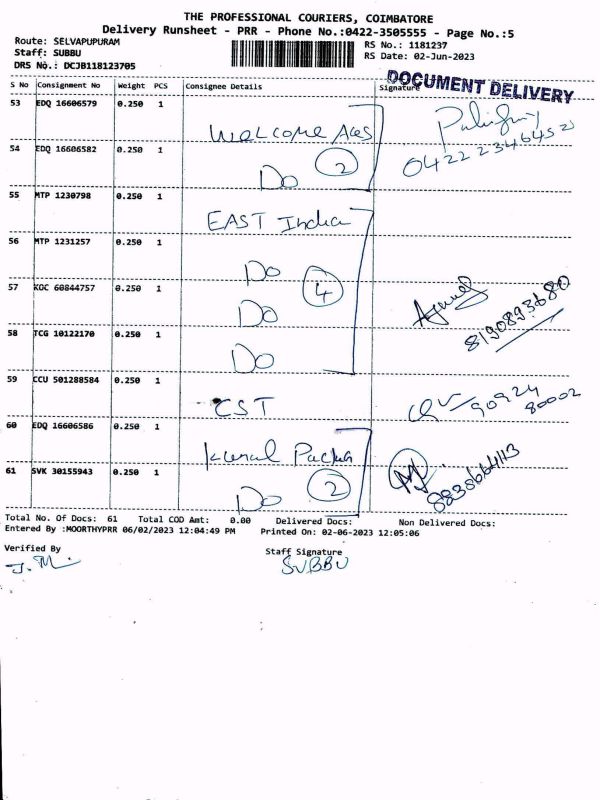 THE PROFESSIONAL COURIERS, COIMBATORE
Delivery Runsheet - PRR - Phone No.:0422-3505555 - Page No.:5
Route: SELVAPUPURAM
Staff: SUBBU
DRS No.: DCJB118123705
RS No.: 1181237
RS Date: 02-Jun-2023
DOCUMENT DELIVERY
S No Consignment No Weight PCS Consignee Details Signature
53 EDQ 16606579 0.250 1 Welcome Aces
54 EDQ 16606582 0.250 1 Do 2 0422 2346452
55 MTP 1230798 0.250 1 EAST India
56 MTP 1231257 0.250 1 Do
57 KOC 60844757 0.250 1 Do 4 8190893680
58 TCG 10122170 0.250 1 Do
59 CCU 501288584 0.250 1 CST 90924 80002
60 EDQ 16606586 0.250 1
61 SVK 30155943 0.250 1 Do 2
Total No. Of Docs: 61 Total COD Amt: 0.00 Delivered Docs: Non Delivered Docs:
Entered By :MOORTHYPRR 06/02/2023 12:04:49 PM Printed On: 02-06-2023 12:05:06
Verified By Staff Signature
SUBBU